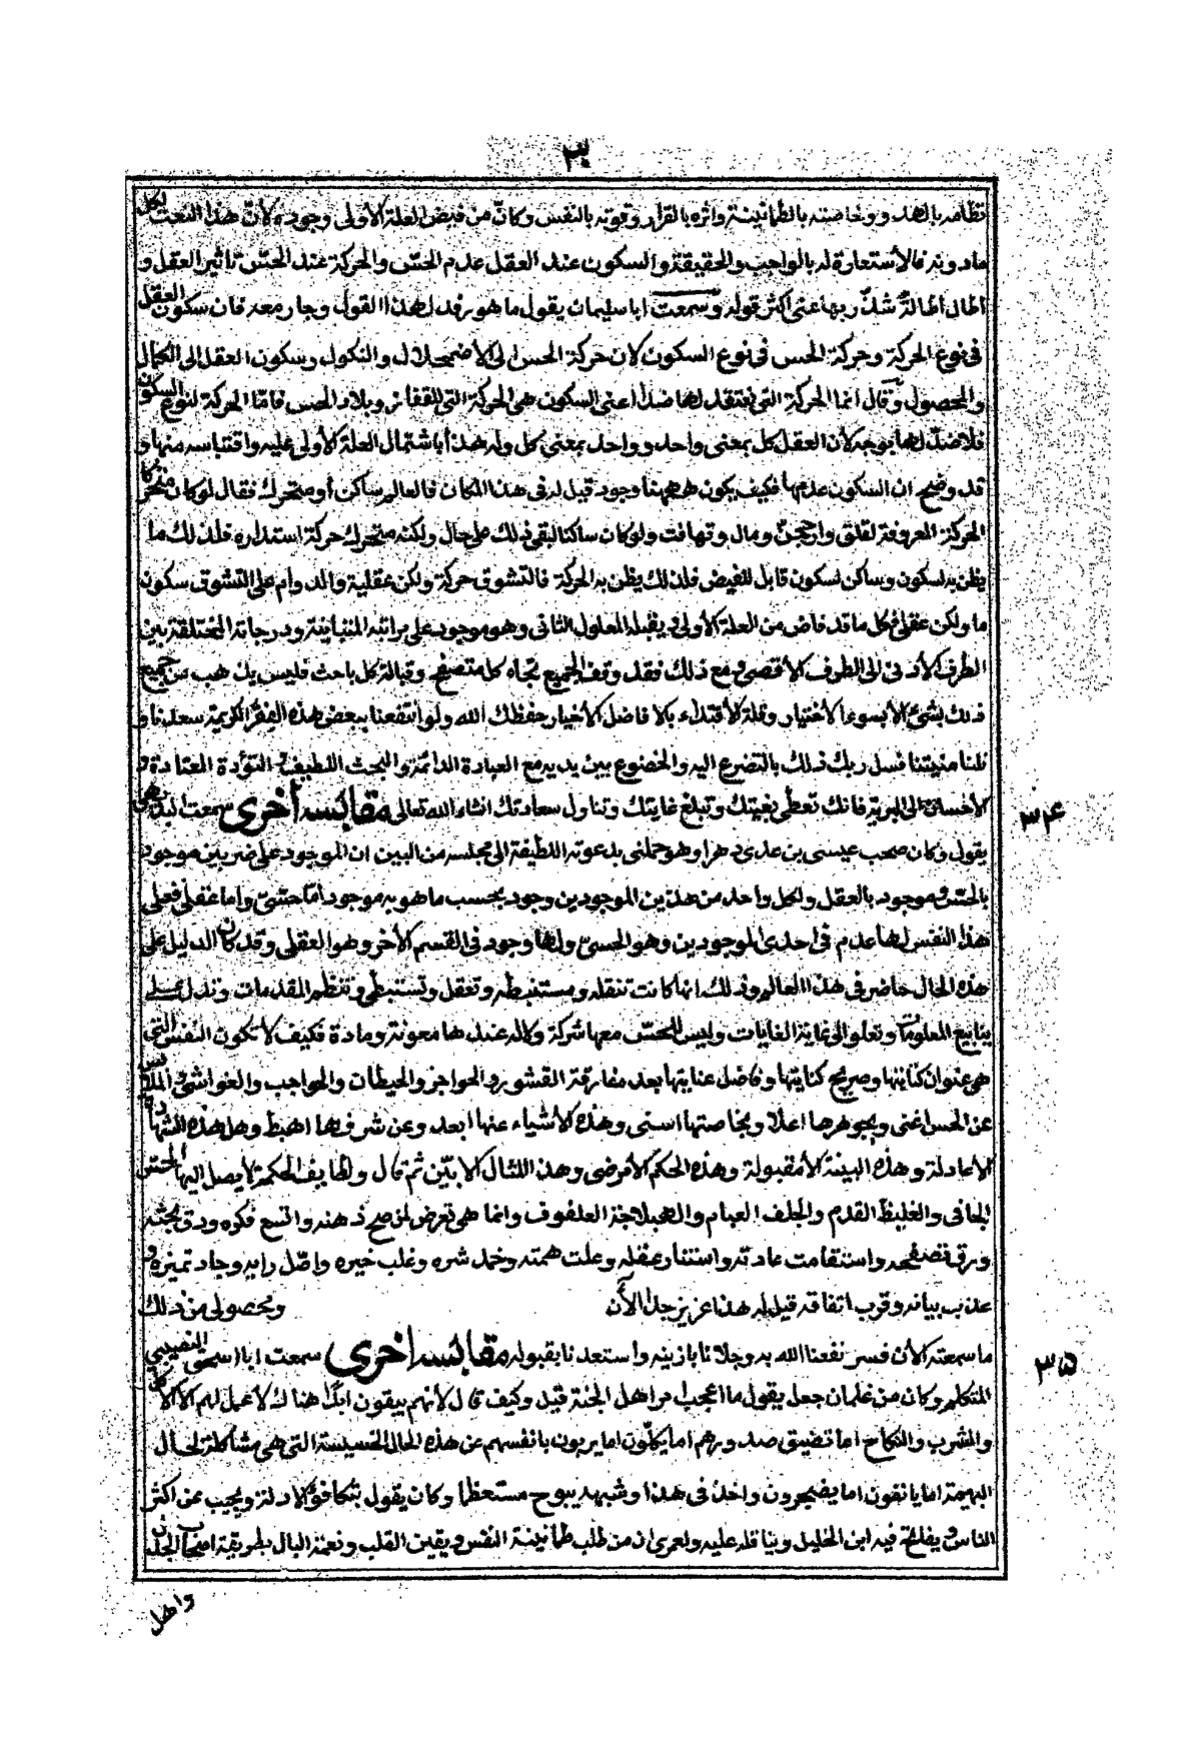 ٣٠
نظامه بالهدو وخاصته بالطمأنينة واثره بالقرار وقوته بالنفس وكان من فيض العلة الأولى وجوده لأن هذا النعت لكل
مادونه فالأستعارة له بالواجب والحقيقة والسكون عند العقل عدم الحس والحركة عند الحس تأثير العقل و
الحال الحالة شذ ربها عنى اكثر قوله وسمعت ابا سليمان يقول ما هو رفد لهذا القول وجار معه فان سكون العقل
فى نوع الحركة وحركة الحس فى نوع السكون لان حركة الحس الى الأضمحلال والنكول وسكون العقل الى الكمال
والمحصول وقال انما الحركة التى نفتقد لها ضدا اعنى السكون هى الحركة التى للقفائر وبلاد الحس فاما الحركة لنوع السكون
فلا ضد لها بوجه لأن العقل كل بمعنى واحد وواحد بمعنى كل وله هذا باشتمال العلة الأولى عليه واقتباسه منها و
قد وضح ان السكون عدمها فكيف يكون ههنا وجود قيل له فى هذا المكان فالعالم ساكن أو متحرك فقال لو كان متحركا
الحركة المعروفة لقلق وارجحن ومال وتهافت ولو كان ساكنا لبقى ذلك على حال ولكنه متحرك حركة استدارة فلذلك ما
يظن به لسكون وساكن لسكون قابل للفيض فلذلك يظن به الحركة فالتشوق حركة ولكن عقلية والدوام على التشوق سكون
ما ولكن عقلى وكل ما قد فاض من العلة الأولى ويقبله المعلول الثانى وهو موجود على مراتبه المتباينة ودرجاته المختلفة بين
الطرف الأدنى الى الطرف الأقصى ومع ذلك فقد وقف الجميع تجاه كل متصفح وقبالة كل باحث فليس يذهب من جميع
ذلك بشئ الا بسوء الأختيار وقلة الأقتداء بالأفاضل الأخيار حفظك الله ولو انتفعنا ببعض هذه الفقر الكريمة سعدنا و
نلنا منيتنا فسل ربك ذلك بالتضرع اليه والخضوع بين يديه مع العبادة الدائمة والبحث اللطيف والتؤدة المعتادة و
الأحسان الى البرية فانك تعطى بغيتك وتبلغ غايتك وتناول سعادتك انشاء الله تعالى مقابسه أخرى سمعت البديهى
٣٤
يقول وكان صحب عيسى بن عدى دهرا وهو حملنى بدعوته اللطيفة الى مجلسه من البين ان الموجود على ضربين موجود
بالحس وموجود بالعقل ولكل واحد من هذين الموجودين وجود بحسب ما هو به موجود اما حسى واما عقلى فعلى
هذا النفس لها عدم فى احدى الموجودين وهو الحسى ولها وجود فى القسم الأخر وهو العقلى وقد كان الدليل على
هذه الحال حاضر فى هذا العالم وذلك انها كانت تنقله ومستنبطه وتعقل وتستنبط وتنظم المقدمات وتدل على
ينابيع المعلومات وتعلو الى غاية الغايات وليس للحس معها شركة ولا له عندها معونة ومادة فكيف لا تكون النفس التى
هى عنوان كنايتها وصريح كنايتها وفاضل عنايتها بعد مفارقة القشور والحواجز والحيطان والحواجب والغواشى والملابس
عن الحس اغنى وبجوهرها اعلا وبخاصتها اسنى وهذه الأشياء عنها ابعد وعن شرفها اهبط وهل هذه الشهادة
الا عادلة وهذه البينة الا مقبولة وهذه الحكم الا مرضى وهذا المثال الا بين ثم قال ولطايف الحكمة لا يصل اليها الحس
الجافى والغليظ الفدم والجلف العبام والهبلاجة العلفوف وانما هى تعرض لمن صح ذهنه واتسع فكره ودق بحثه
ورق تصفحه واستقامت عادته واستنار عقله وعلت همته وخمد شره وغلب خيره واصل رايه وجاد تميزه و
عذب بيانه وقرب اتفاقه قيل له هذا عزيز جدا الأن ومحصولى من ذلك
ما سمعته الأن فسر نفعنا الله به وجلانا بازينه واستعدنا بقبوله مقابسه اخرى سمعت ابا اسحق النصيبى
٣٥
المتكلم وكان من غلمان جعل يقول ما اعجب امر اهل الجنة قيل وكيف قال لأنهم يبقون ابدا هناك لا عمل لهم الا الأكل
والمشرب والنكاح اما تضيق صدورهم اما يكلون اما يربون بانفسهم عن هذه الحال الخسيسة التى هى مشاكلة لحال
البهيمة اما يانفون اما يضجرون واخذ فى هذا وشبهه يبوح مستعظما وكان يقول بتكافؤ الادلة ويجيب من اكثر
الناس ويفلح فيه ابن الخليل ويناقله عليه ولعمرى ان من طلب طمانينة النفس ويقين القلب ونعمة البال بطريقة اصحاب الجدل
واهل